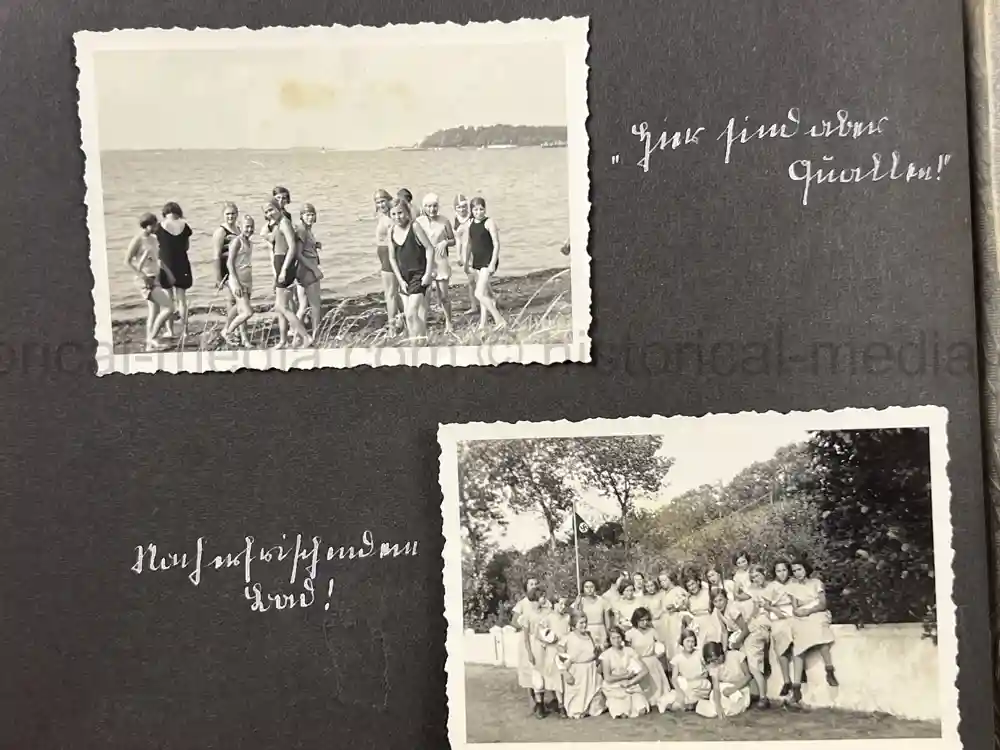 "Hier sind aber
Quallen!"
orical-media.com © historical-media
Nach erfrischendem
Bad!